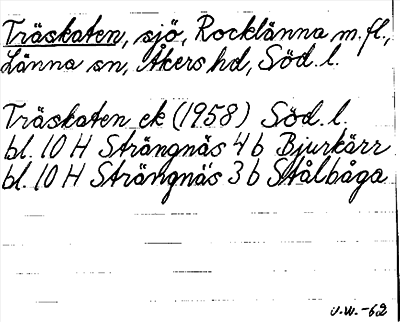 Träskaten, sjö, Rocklänna m.fl.,
Länna sn, Åkers hd, Söd. l.
Träskaten ek (1958) Söd. l.
bl. 10 H Strängnäs 4 b Bjurkärr
bl. 10 H Strängnäs 3 b Stålbåga
U.W.-62